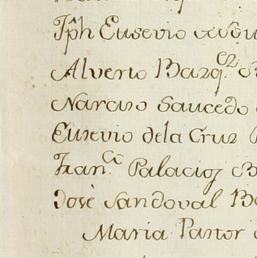 Jph Eusevio
Alverto Bazqez
Narciso Saucedo
Eusevio dela Cruz
Franca Palacioz
José Sandoval
Maria Pastor